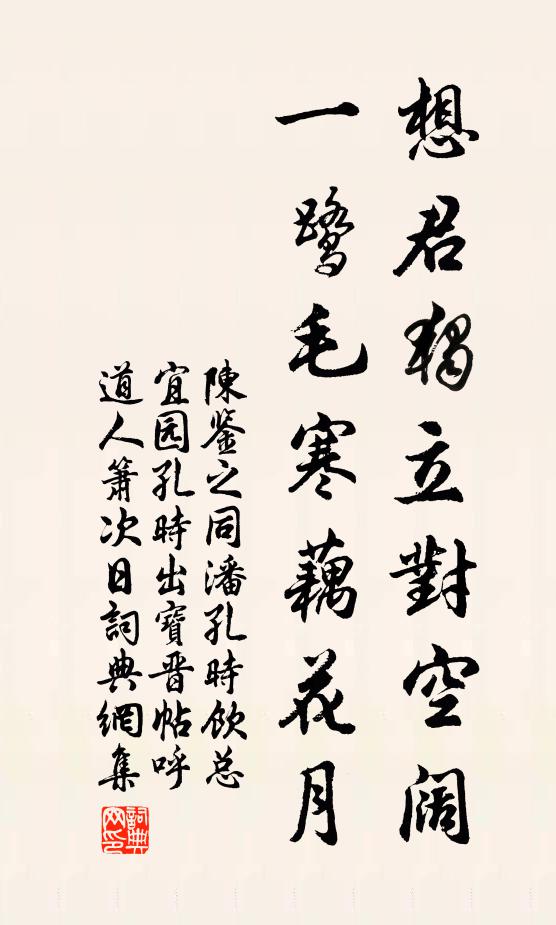 想君獨立對空阔
一鹭毛寒藕花月
陳鉴之同潘孔時飲总
宜园孔時出寶晋帖呼
道人箫次日詞典網集
詞典
网印